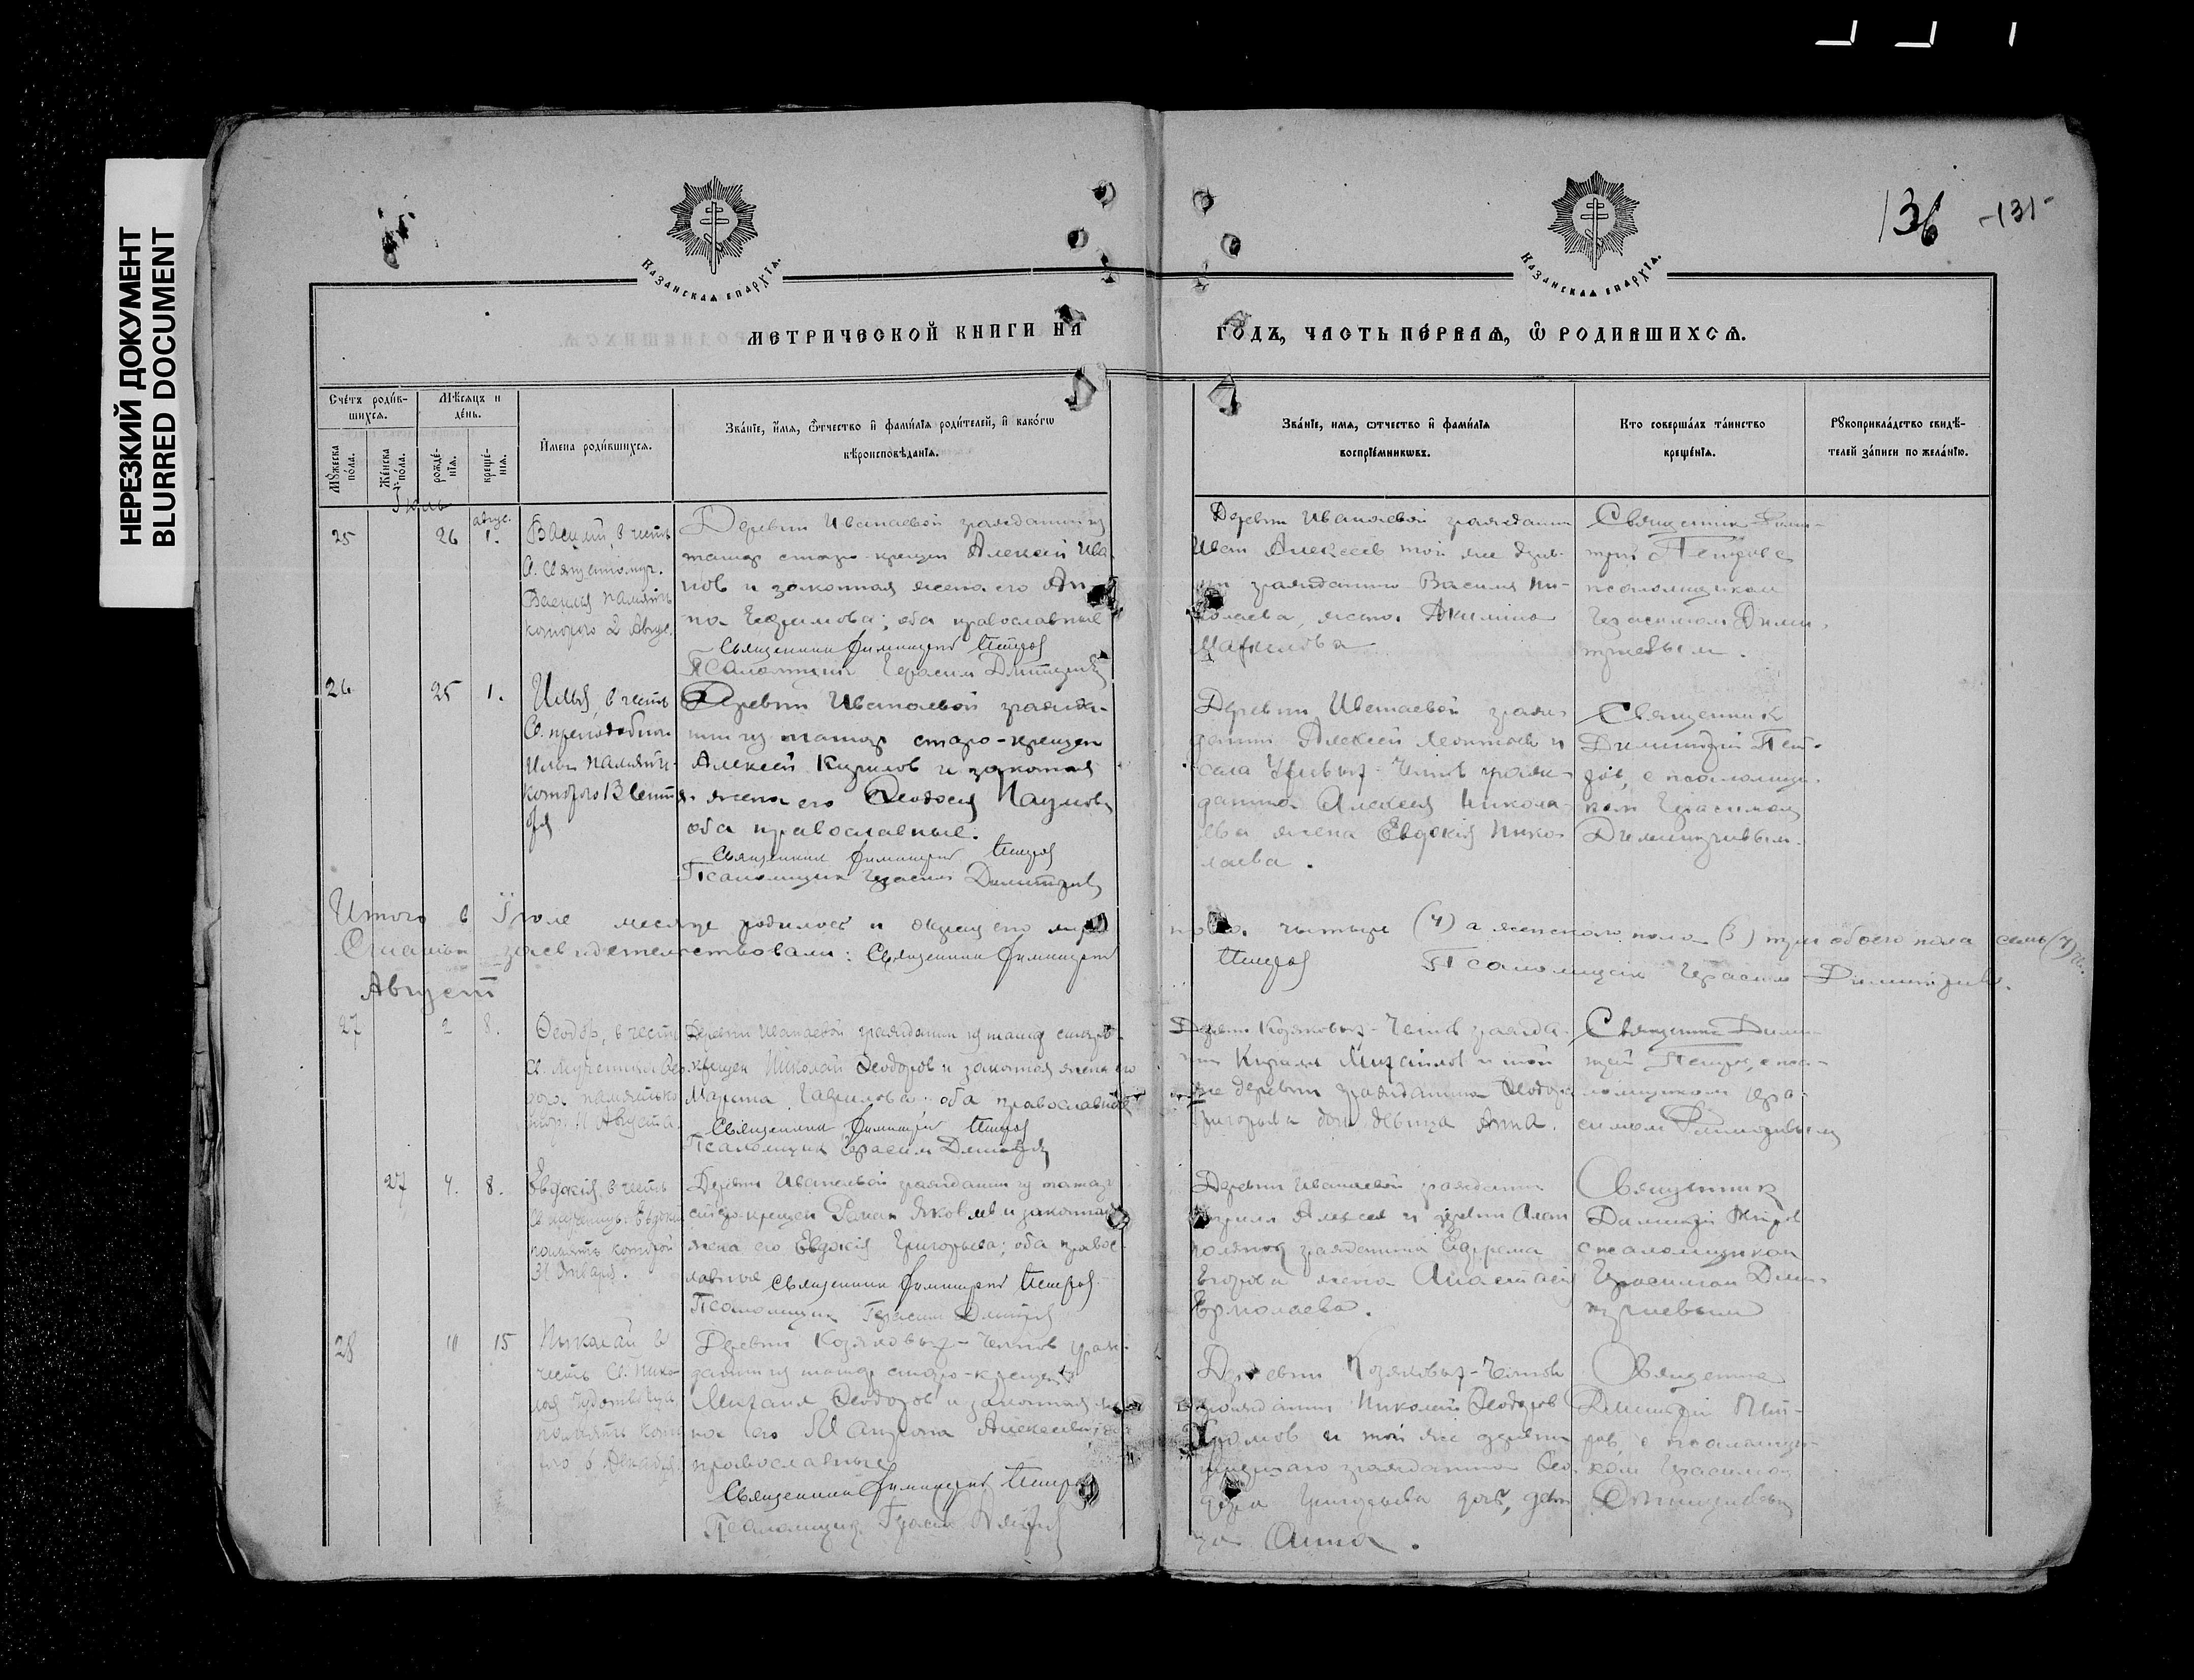 НЕРЕЗКИЙ ДОКУМЕНТ
BLURRED DOCUMENT
136 -131-
КАЗАНСКАЯ ЕПАРХІЯ.
КАЗАНСКАЯ ЕПАРХІЯ.
МЕТРИЧЕСКОЙ КНИГИ НА ГОДЪ, ЧАСТЬ ПЕ́РВАЯ, Ѿ РОДИВШИХСЯ.
Сче́тъ роди́в-
шихся.
Мѣ́сяцъ и
де́нь.
Мꙋ́жеска
по́ла.
Же́нска
по́ла.
рожде́-
нія.
креще́-
нія.
И҆мена роди́вшихся.
Зва́ніе, и҆́мя, ѻ҆́тчество и҆ фами́лія роди́телей, и҆ како́гѡ
вѣроисповѣ́данія.
Зва́ніе, имя, ѻтчество и҆ фами́лія
воспріе́мникѡвъ.
Кто соверша́лъ та́инство
креще́нія.
Рꙋкоприкла́дство свидѣ́-
телей за́писи по жела́нію.
Іюль
авгус.
25 26 1.
Василий, в честь
С. священомуч.
Василия память
которого 2 Авгус.
Деревни Иванаевой гражданин из
татар старо-крещен Алексей Ива-
нов и законная жена его Ан-
на Ефимова; оба православные
Священник Димитрий Петров
Псаломщик Герасим Дмитриев
Деревни Иванаевой гражданин
Иван Алексеев той же дерев-
ни гражданина Василия Ни-
колаева, жена Акилина
Священник Дими-
трий Петров с
псаломщиком
Герасимом Дими-
триевым.
26 25 1.
Илья, в честь
С. преподобного
Ильи память
которого
Деревни Иванаевой гражда-
нин из татар старо-крещен
Алексей Кирилов и законная
жена его Феодосия Наумова
оба православные.
Священник Димитрий Петров
Псаломщик Герасим Димитриев
Деревни Иванаевой граж-
данин Алексей Леонтьев и
села гражда-
данина Алексея Никола-
ева жена Евдокия Нико-
лаева.
Священник
Димитрий Пет-
ров, с псаломщи-
ком Герасимом
Димитриевым.
Итого в Іюле месяце родилось и окрещено муж. пола четыре (4) а женского пола (3) три обоего пола семь (7)
засвидетельствовали: Священник Димитрий Петров Псаломщик Герасим Димитриев.
Август
27 2 8.
Феодор, в честь
С. Мученика Фео-
дора память ко-
тор. 11 Августа
Деревни Иванаевой гражданин из татар старо-
крещен Николай Феодоров и законная жена его
Марина Гаврилова: оба православные
Священник Димитрий Петров
Псаломщик Герасим Димитриев
Деревни Козяковых-Челнов гражда-
нин Кирилл Михайлов и той
же деревни гражданина Феодора
Григорьева дочь девица Анна.
Священник Дими-
трий Петров, с пса-
ломщиком Гера-
симом Димитриевым
27 4. 8.
Евдокия, в честь
С. мученицы Евдокии
память которой
31 Января.
Деревни Иванаевой гражданин из татар
старо-крещен Роман Яковлев и законная
жена его Евдокия Григорьева; оба право-
славные Священник Димитрий Петров
Псаломщик Герасим Димитриев
Деревни Иванаевой гражданин
Кирилл Алексеев и деревни
гражданина Ефрема
Егорова жена Анастасия
Ермолаева.
Священник
Димитрий Петров
с псаломщиком
Герасимом Дими-
триевым
28 11 15
Николай в
честь С. Нико-
лая чудотворца
память кото-
рого 6 Декабря
Деревни Козяковых-Челнов граж-
данин из татар старо-крещен
Михаил Феодоров и законная же-
на его Матрона Алексеева; оба
православные
Священник Димитрий Петров
Псаломщик Герасим Димитриев
Деревни Козяковых-Челнов
гражданин Николай Феодоров
Громов и той же деревни
гражданина Фео-
дора Григорьева дочь, деви-
ца Анна.
Священник
Димитрий Пет-
ров, с псаломщи-
ком Герасимом
Димитриевым